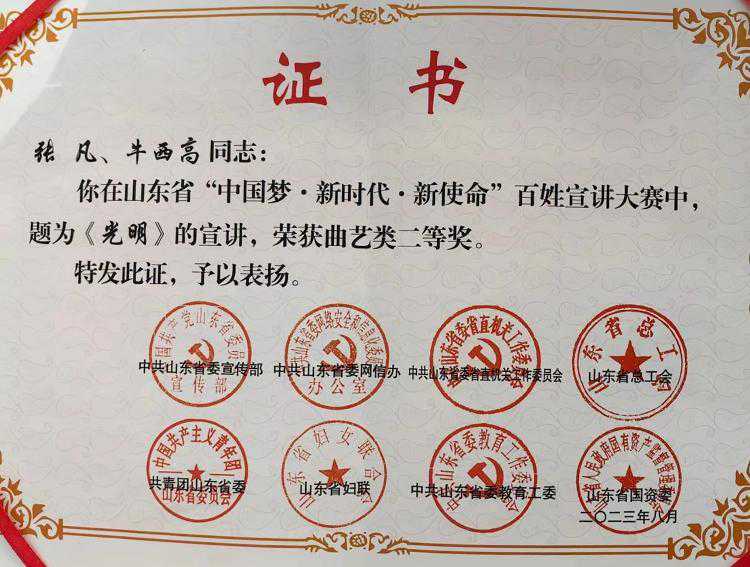 证书
张 凡、牛西高同志：
你在山东省“中国梦·新时代·新使命”百姓宣讲大赛中，
题为《光明》的宣讲，荣获曲艺类二等奖。
特发此证，予以表扬。
中国共产党山东省委员会
宣传部
中共山东省委宣传部
中共山东省委网络安全和信息化委员会
办公室
中共山东省委网信办
中共山东省委省直机关工作委员会
中共山东省委省直机关工作委员会
山东省总工会
山东省总工会
中国共产主义青年团
山东省委员会
共青团山东省委
山东省妇女联合会
山东省妇联
中共山东省委教育工作委员会
中共山东省委教育工委
山东省人民政府国有资产监督管理委员会
山东省国资委
二〇二三年八月